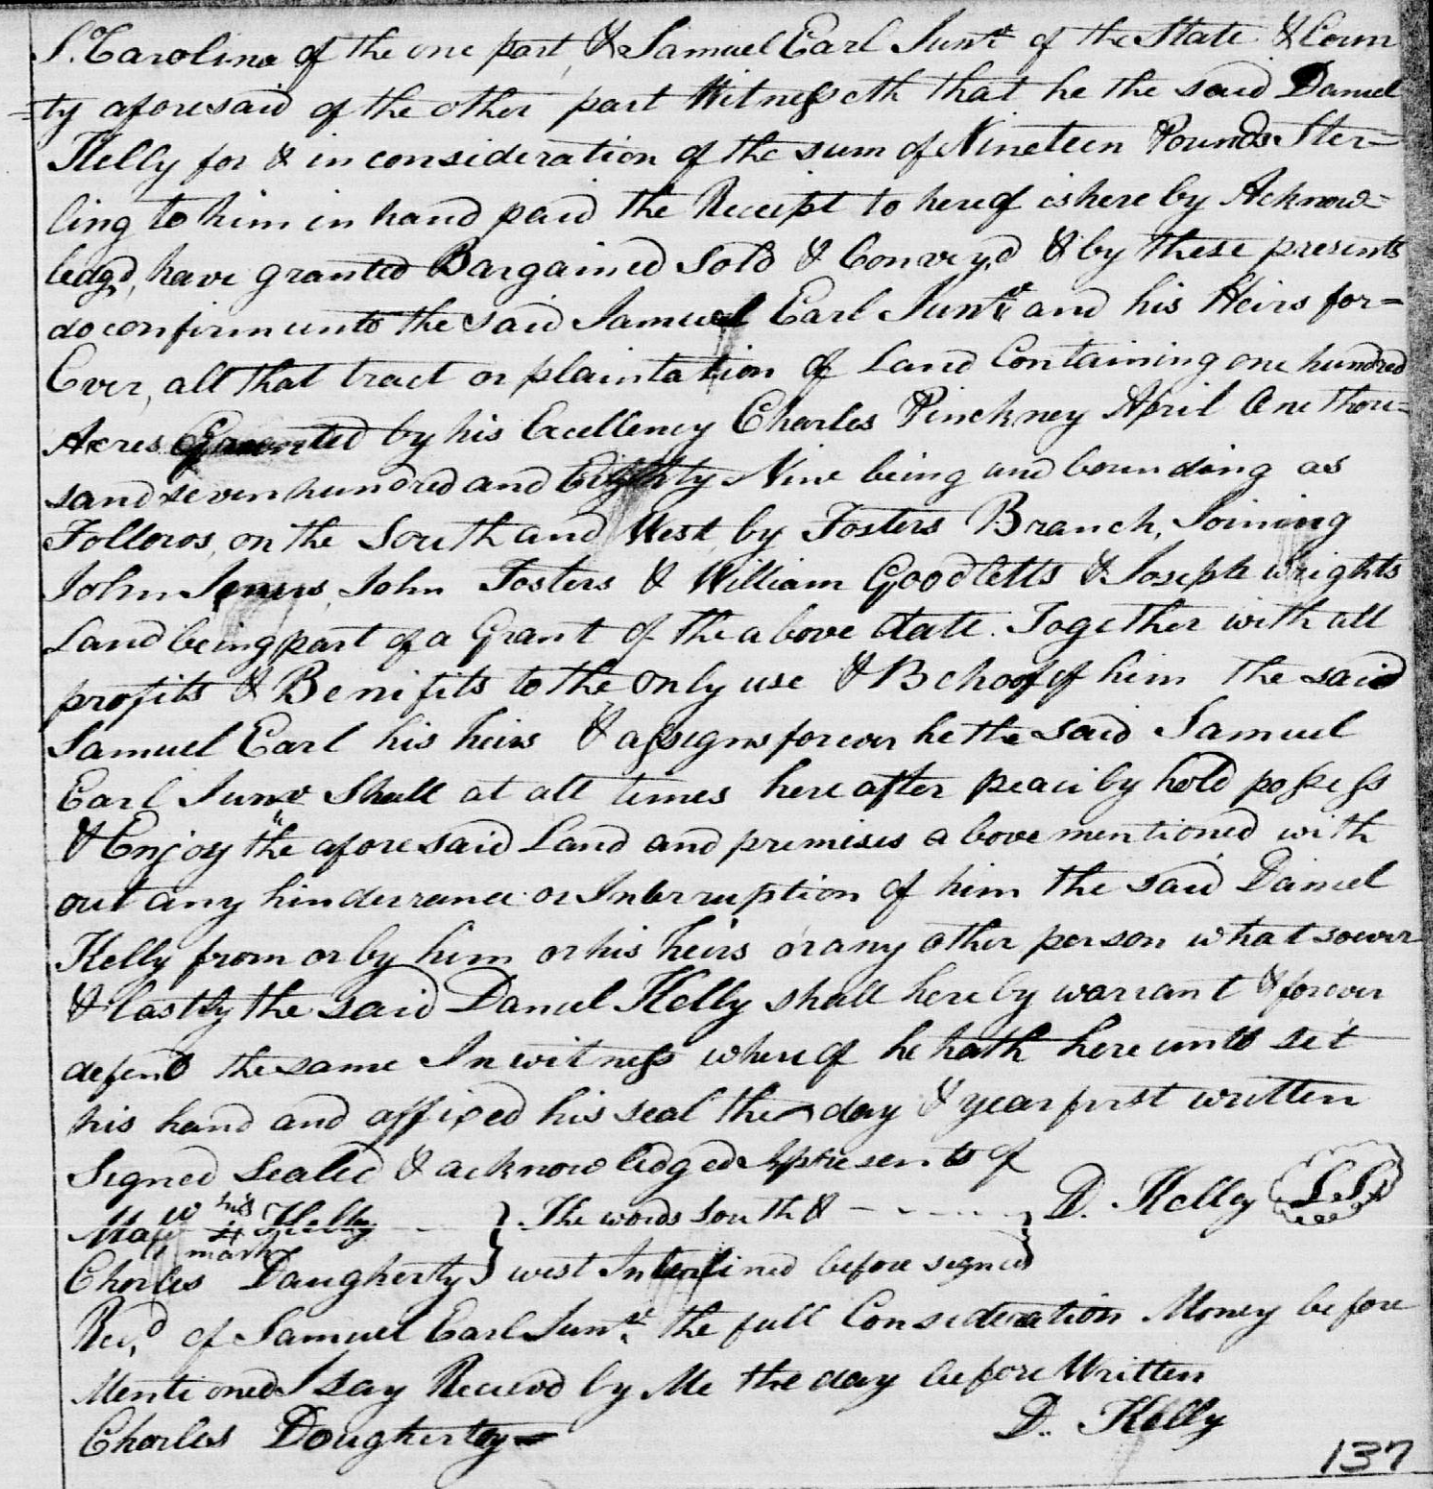 So. Carolina of the one part, & Samuel Earl Junr. of the State & Coun
=ty aforesaid of the other part Witnesseth that he the said Daniel
Kelly for & in consideration of the sum of Nineteen Pounds Ster=
ling to him in hand paid the Receipt to hereof is hereby Acknow=
ledgd, have granted Bargained Sold & Convey,d & by these presents
do confirm unto the said Samuel Earl Junr. and his Heirs for=
Ever, all that tract or plaintation of Land Containing one hundred
Acres Granted by his Excellency Charles Pinckney April One thou=
sand seven hundred and Eighty Nine being and bounding as
Follows, on the South and West by Fosters Branch, Joining
John John Fosters & William Goodletts & Joseph Wrights
Land being part of a Grant of the above State. Together with all
profits & Benifits to the only use & Behoof of him the said
Samuel Earl his heirs & assigns forever he the said Samuel
Earl Junr Shall at all times here after peaciby hold possess
& Enjoy the aforesaid Land and premises above mentioned with
out any hinderrance or Interruption of him the said Daniel
Kelly from or by him or his heirs or any other person what soever
& lastly the said Daniel Kelly shall hereby warrant & forever
defend the same In witness whereof he hath here unto set
his hand and affixed his seal the day & year first written
Signed Sealed & acknowledged In presents of
his Kelly } The words South & - - - - - } D. Kelly (L.S.)
mark
Charles Daugherty } west Interlined before signed
Recd. of Samuel Earl Junr. the full Consideration Money before
Mentioned I say Received by Me the day before Written
Charles Dougherty D. Kelly
137